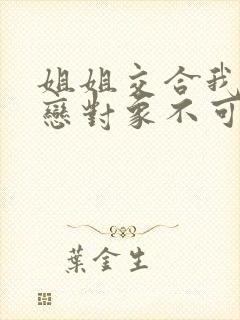 姐姐交合我
戀對象不可
葉金生